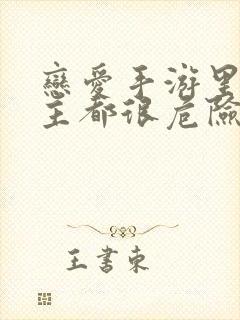 戀愛手游里
主都很危險
王書東